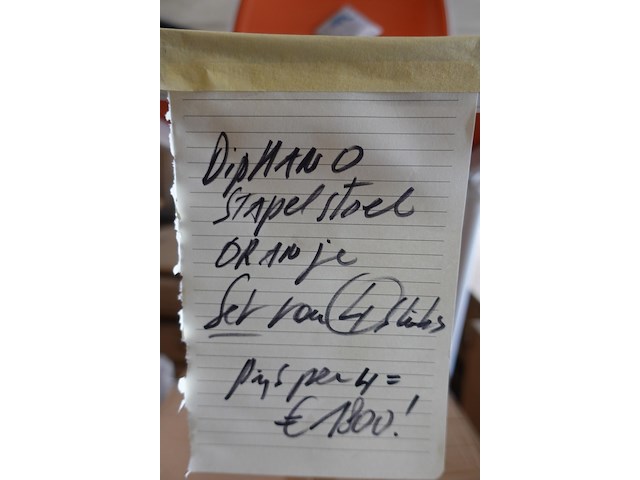 DipHANO
STApelstoel
ORANje
Set van 4 stuks
prijs per 4 =
€ 1800!